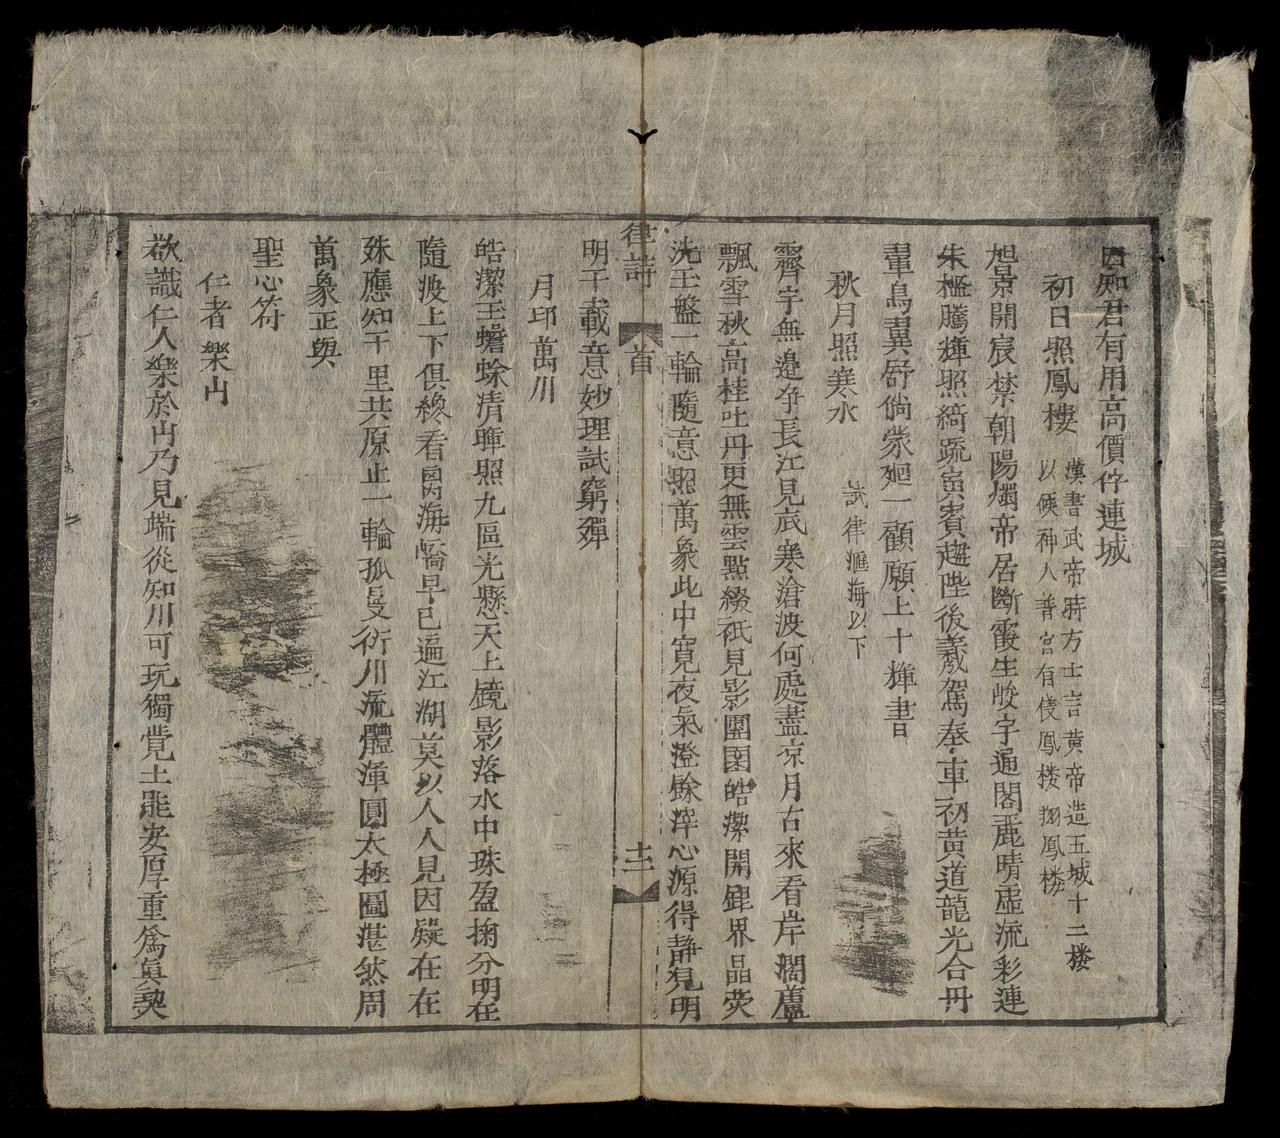 因知君有用高價侔連城
初日照鳳樓
漢書武帝時方士言黄帝造五城十二楼
以候神人普宮有儀鳳楼翔鳳楼
旭景開宸禁朝陽燭帝居斷霞生峻宇遍閣麗晴虛流彩連
朱檻騰輝照綺疏寅賓趨陛後羲駕奉車初黄道龍光合丹
翬鳥翼舒倘蒙廻一顧願上十輝書
秋月照寒水
試律滙海以下
霽宇無邉净長江見底寒滄波何處盡凉月古來看岸濶蘆
飄雪秋高桂吐丹更無雲點綴祇見影團圞皓潔開銀界晶熒
洗玉盤一輪隨意照萬象此中寬夜氣澄餘滓心源得靜觀明
律詩
首
十二
明千載意妙理試窮殫
月印萬川
皓潔玉蟾蜍清暉照九區光懸天上鏡影落水中珠盈掬分明在
隨波上下俱纔看离海嶠早已遍江湖莫以人人見因疑在在
殊應知千里共原止一輪孤曼衍川流體渾圓太極圖湛然周
萬象正與
聖心符
仁者樂山
欲識仁人樂於山乃見端從知川可玩獨覺土能安厚重爲眞契